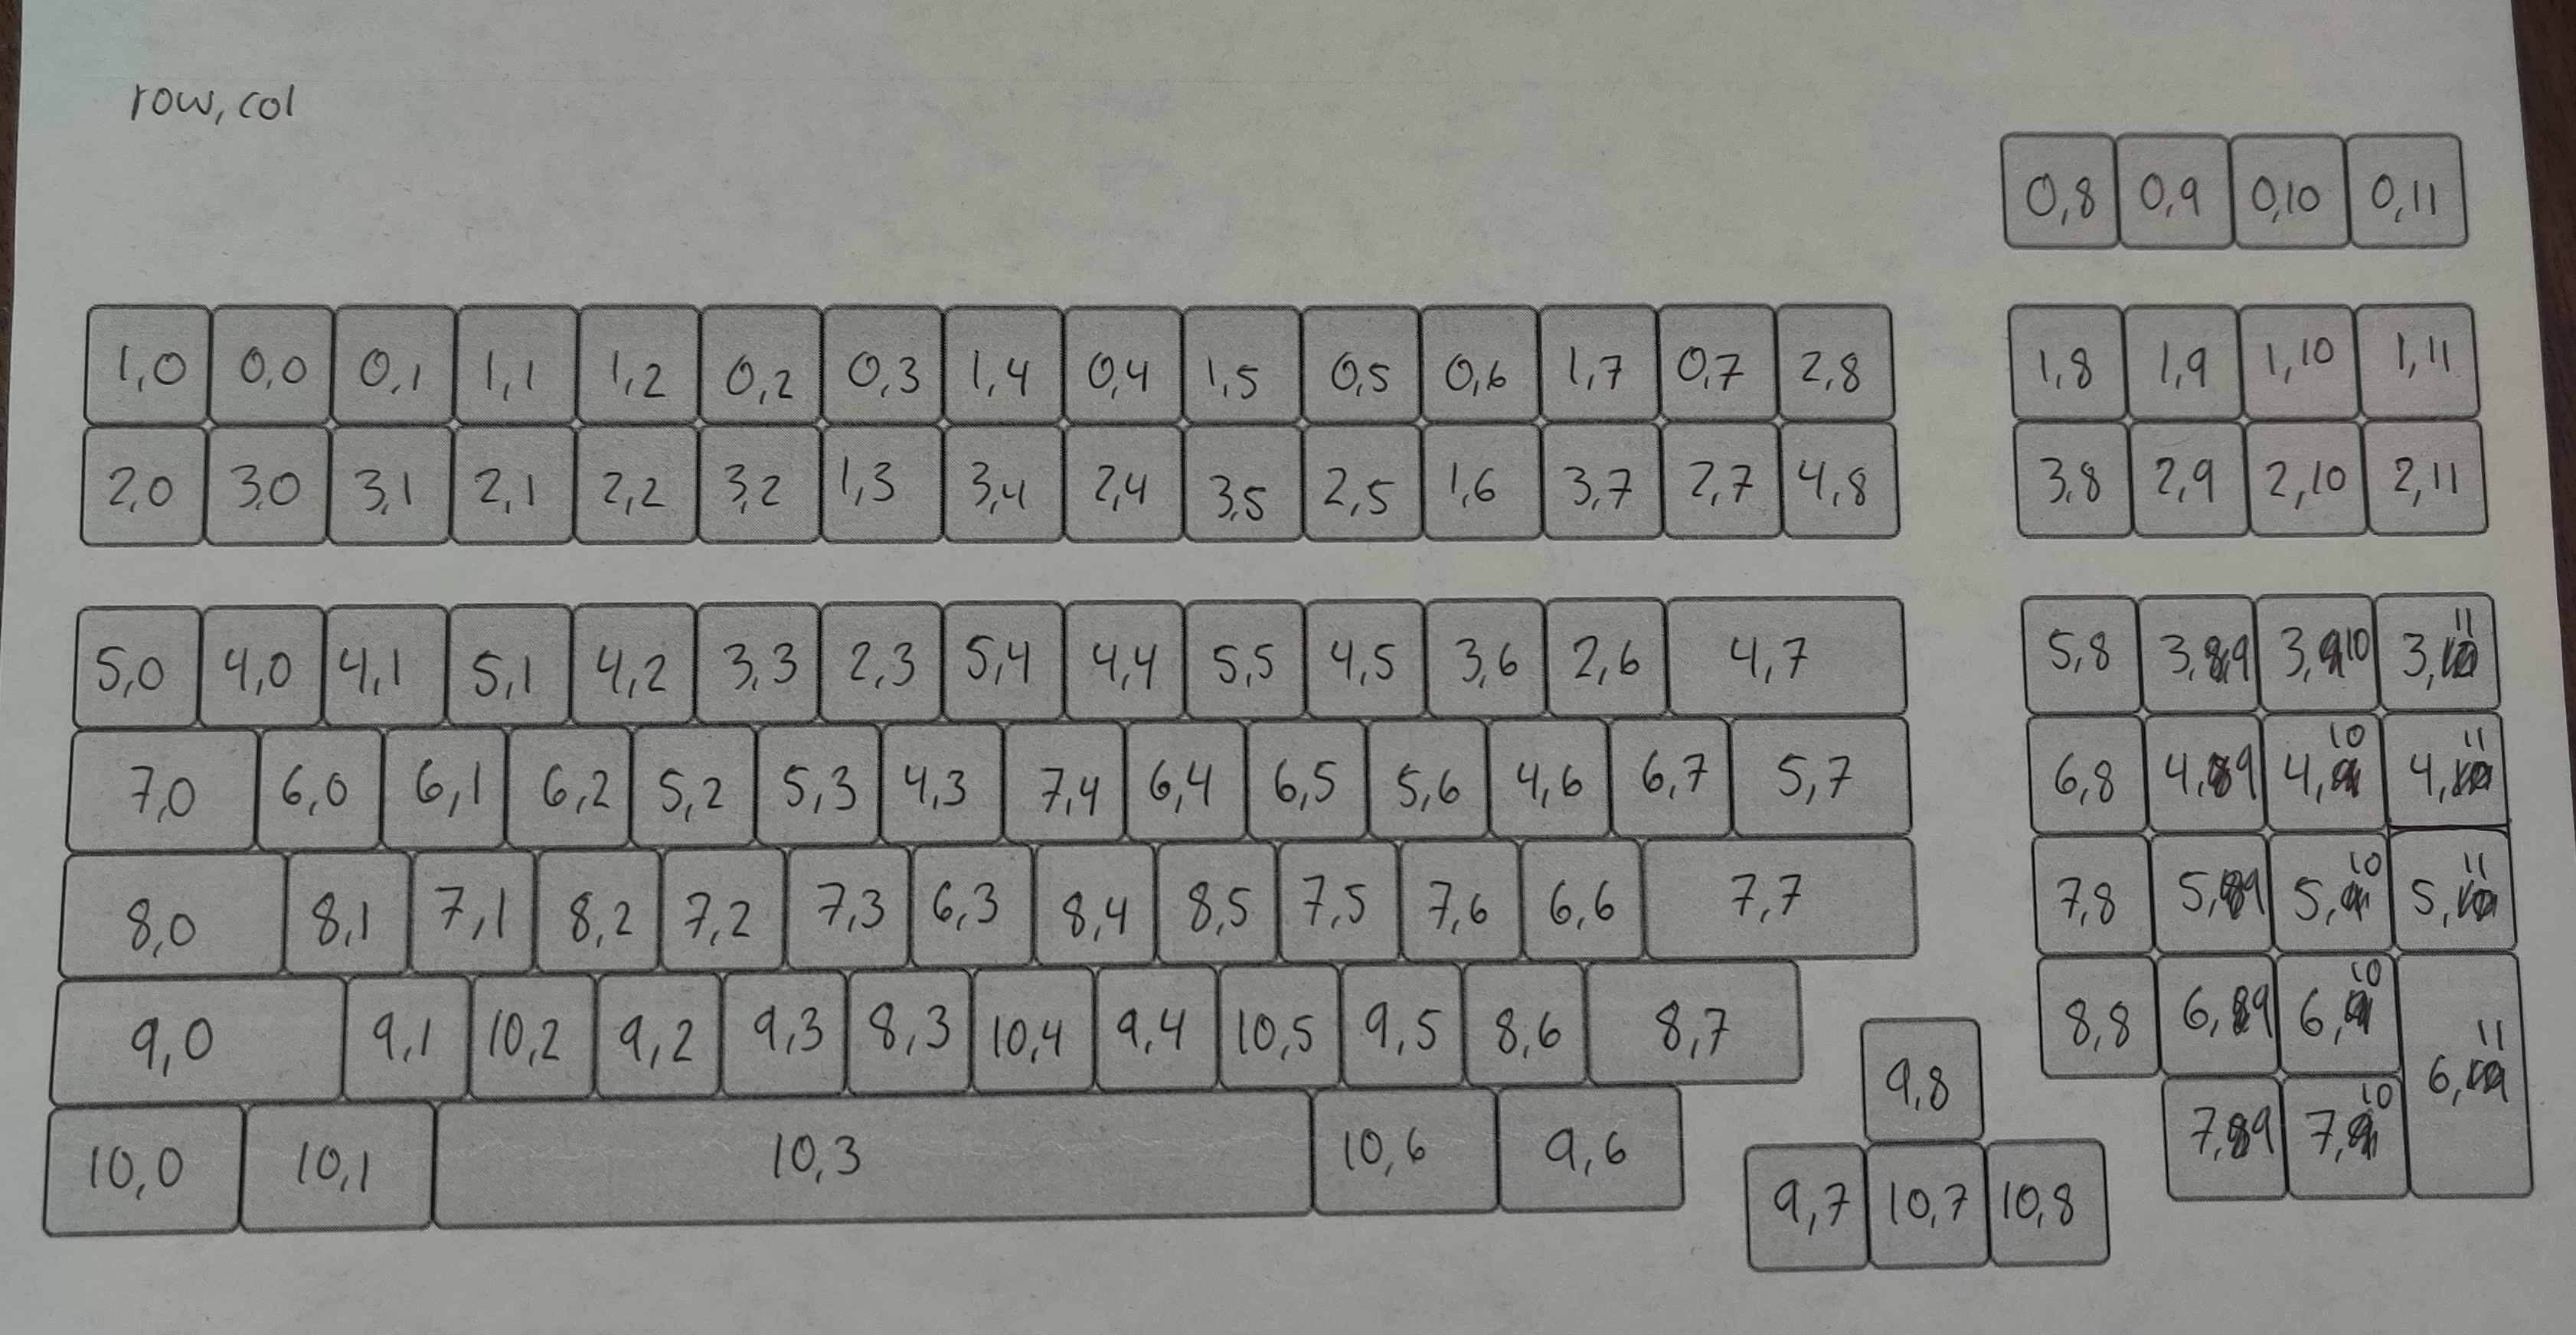 row, col
0,8 0,9 0,10 0,11
1,0 0,0 0,1 1,1 1,2 0,2 0,3 1,4 0,4 1,5 0,5 0,6 1,7 0,7 2,8 1,8 1,9 1,10 1,11
2,0 3,0 3,1 2,1 2,2 3,2 1,3 3,4 2,4 3,5 2,5 1,6 3,7 2,7 4,8 3,8 2,9 2,10 2,11
5,0 4,0 4,1 5,1 4,2 3,3 2,3 5,4 4,4 5,5 4,5 3,6 2,6 4,7 5,8 3,9 3,10 3,11
7,0 6,0 6,1 6,2 5,2 5,3 4,3 7,4 6,4 6,5 5,6 4,6 6,7 5,7 6,8 4,9 4,10 4,11
8,0 8,1 7,1 8,2 7,2 7,3 6,3 8,4 8,5 7,5 7,6 6,6 7,7 7,8 5,9 5,10 5,11
9,0 9,1 10,2 9,2 9,3 8,3 10,4 9,4 10,5 9,5 8,6 8,7 9,8 8,8 6,9 6,10 6,11
10,0 10,1 10,3 10,6 9,6 9,7 10,7 10,8 7,9 7,10